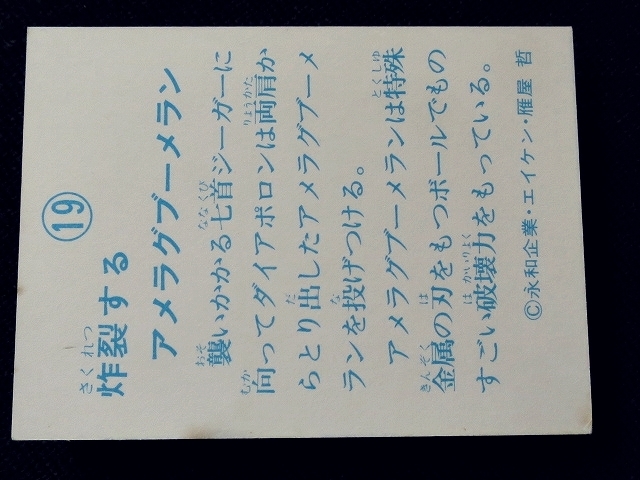 ⑲
炸裂する
アメラグブーメラン
襲いかかる七首ジーガーに
向ってダイアポロンは両肩か
らとり出したアメラグブーメ
ランを投げつける。
アメラグブーメランは特殊
金属の刃をもつボールでもの
すごい破壊力をもっている。
©永和企業・エイケン・雁屋 哲